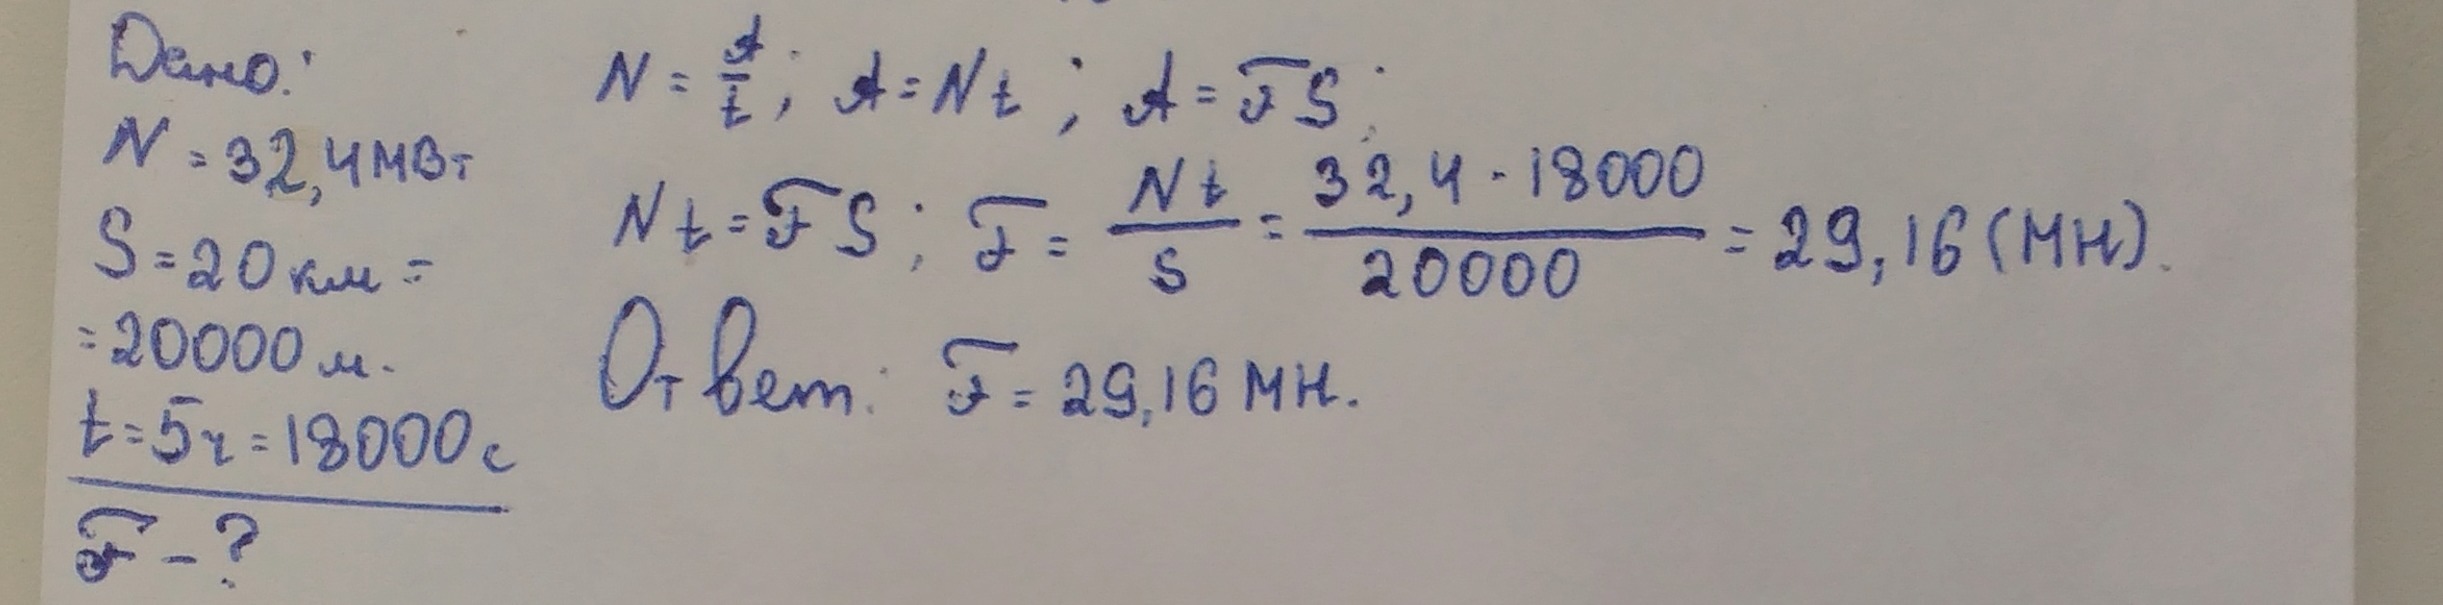 Дано:
N = 32,4 МВт
S = 20 км =
= 20000 м.
t = 5ч = 18000 с
F - ?
N = A/t; A = Nt; A = FS;
Nt = FS; F = Nt/S = 32,4 · 18000/20000 = 29,16 (МН).
Ответ: F = 29,16 МН.